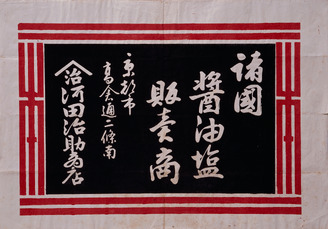 諸國
醤油塩
販売商
京都市
高倉通二條南
治河田治助商店